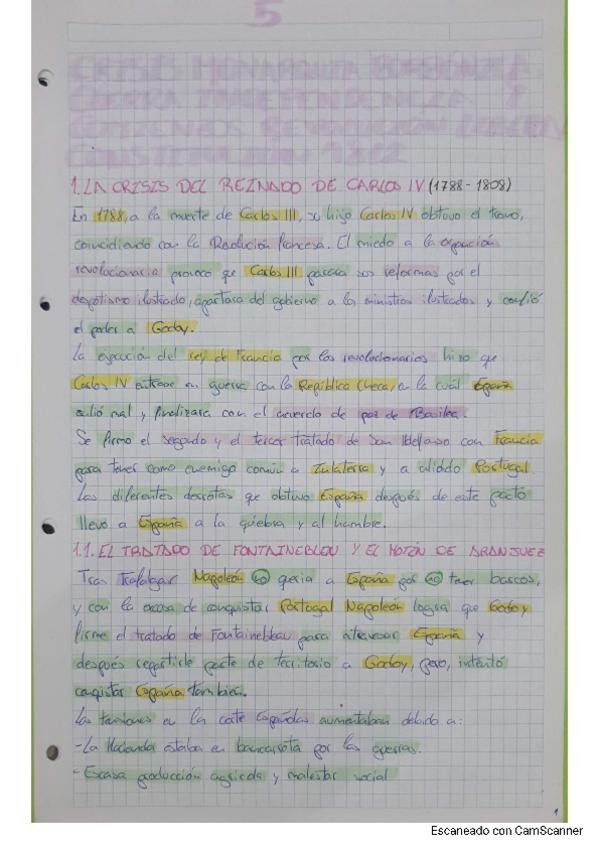 5
CRISIS MONARQUÍA BORBÓNICA
GUERRA INDEPENDENCIA Y
COMIENZOS REVOLUCIÓN LIBERAL
CONSTITUCIÓN 1812
1. LA CRISIS DEL REINADO DE CARLOS IV (1788-1808)
En 1788, a la muerte de Carlos III, su hijo Carlos IV obtuvo el trono,
coincidiendo con la Revolución francesa. El miedo a la expansión
revolucionaria provocó que Carlos III parara sus reformas por el
despotismo ilustrado, apartara del gobierno a los ministros ilustrados y confió
el poder a Godoy.
La ejecución del rey de Francia por los revolucionarios hizo que
Carlos IV entrase en guerra con la República Checa, en la cuál España
salió mal y finalizara con el acuerdo de paz de Basilea.
Se firmo el segundo y el tercer tratado de San Ildefonso con Francia
para tener como enemigo común a Inglaterra y a aliado Portugal.
Las diferentes derrotas que obtuvo España después de este pacto
llevo a España a la quiebra y al hambre.
1.1. EL TRATADO DE FONTAINEBLEU Y EL MOTÍN DE ARANJUEZ
Tras Trafalgar Napoleón no quería a España por no tener barcos,
y con la excusa de conquistar Portugal Napoleón logra que Godoy
firme el tratado de Fontainebleau para atravesar España y
después repartirle parte de territorio a Godoy, pero, intentó
conquistar España también.
Las tensiones en la corte Españolas aumentaban debido a:
-La Hacienda estaba en bancarrota por las guerras.
-Escasa producción agrícola y malestar social
1
Escaneado con CamScanner